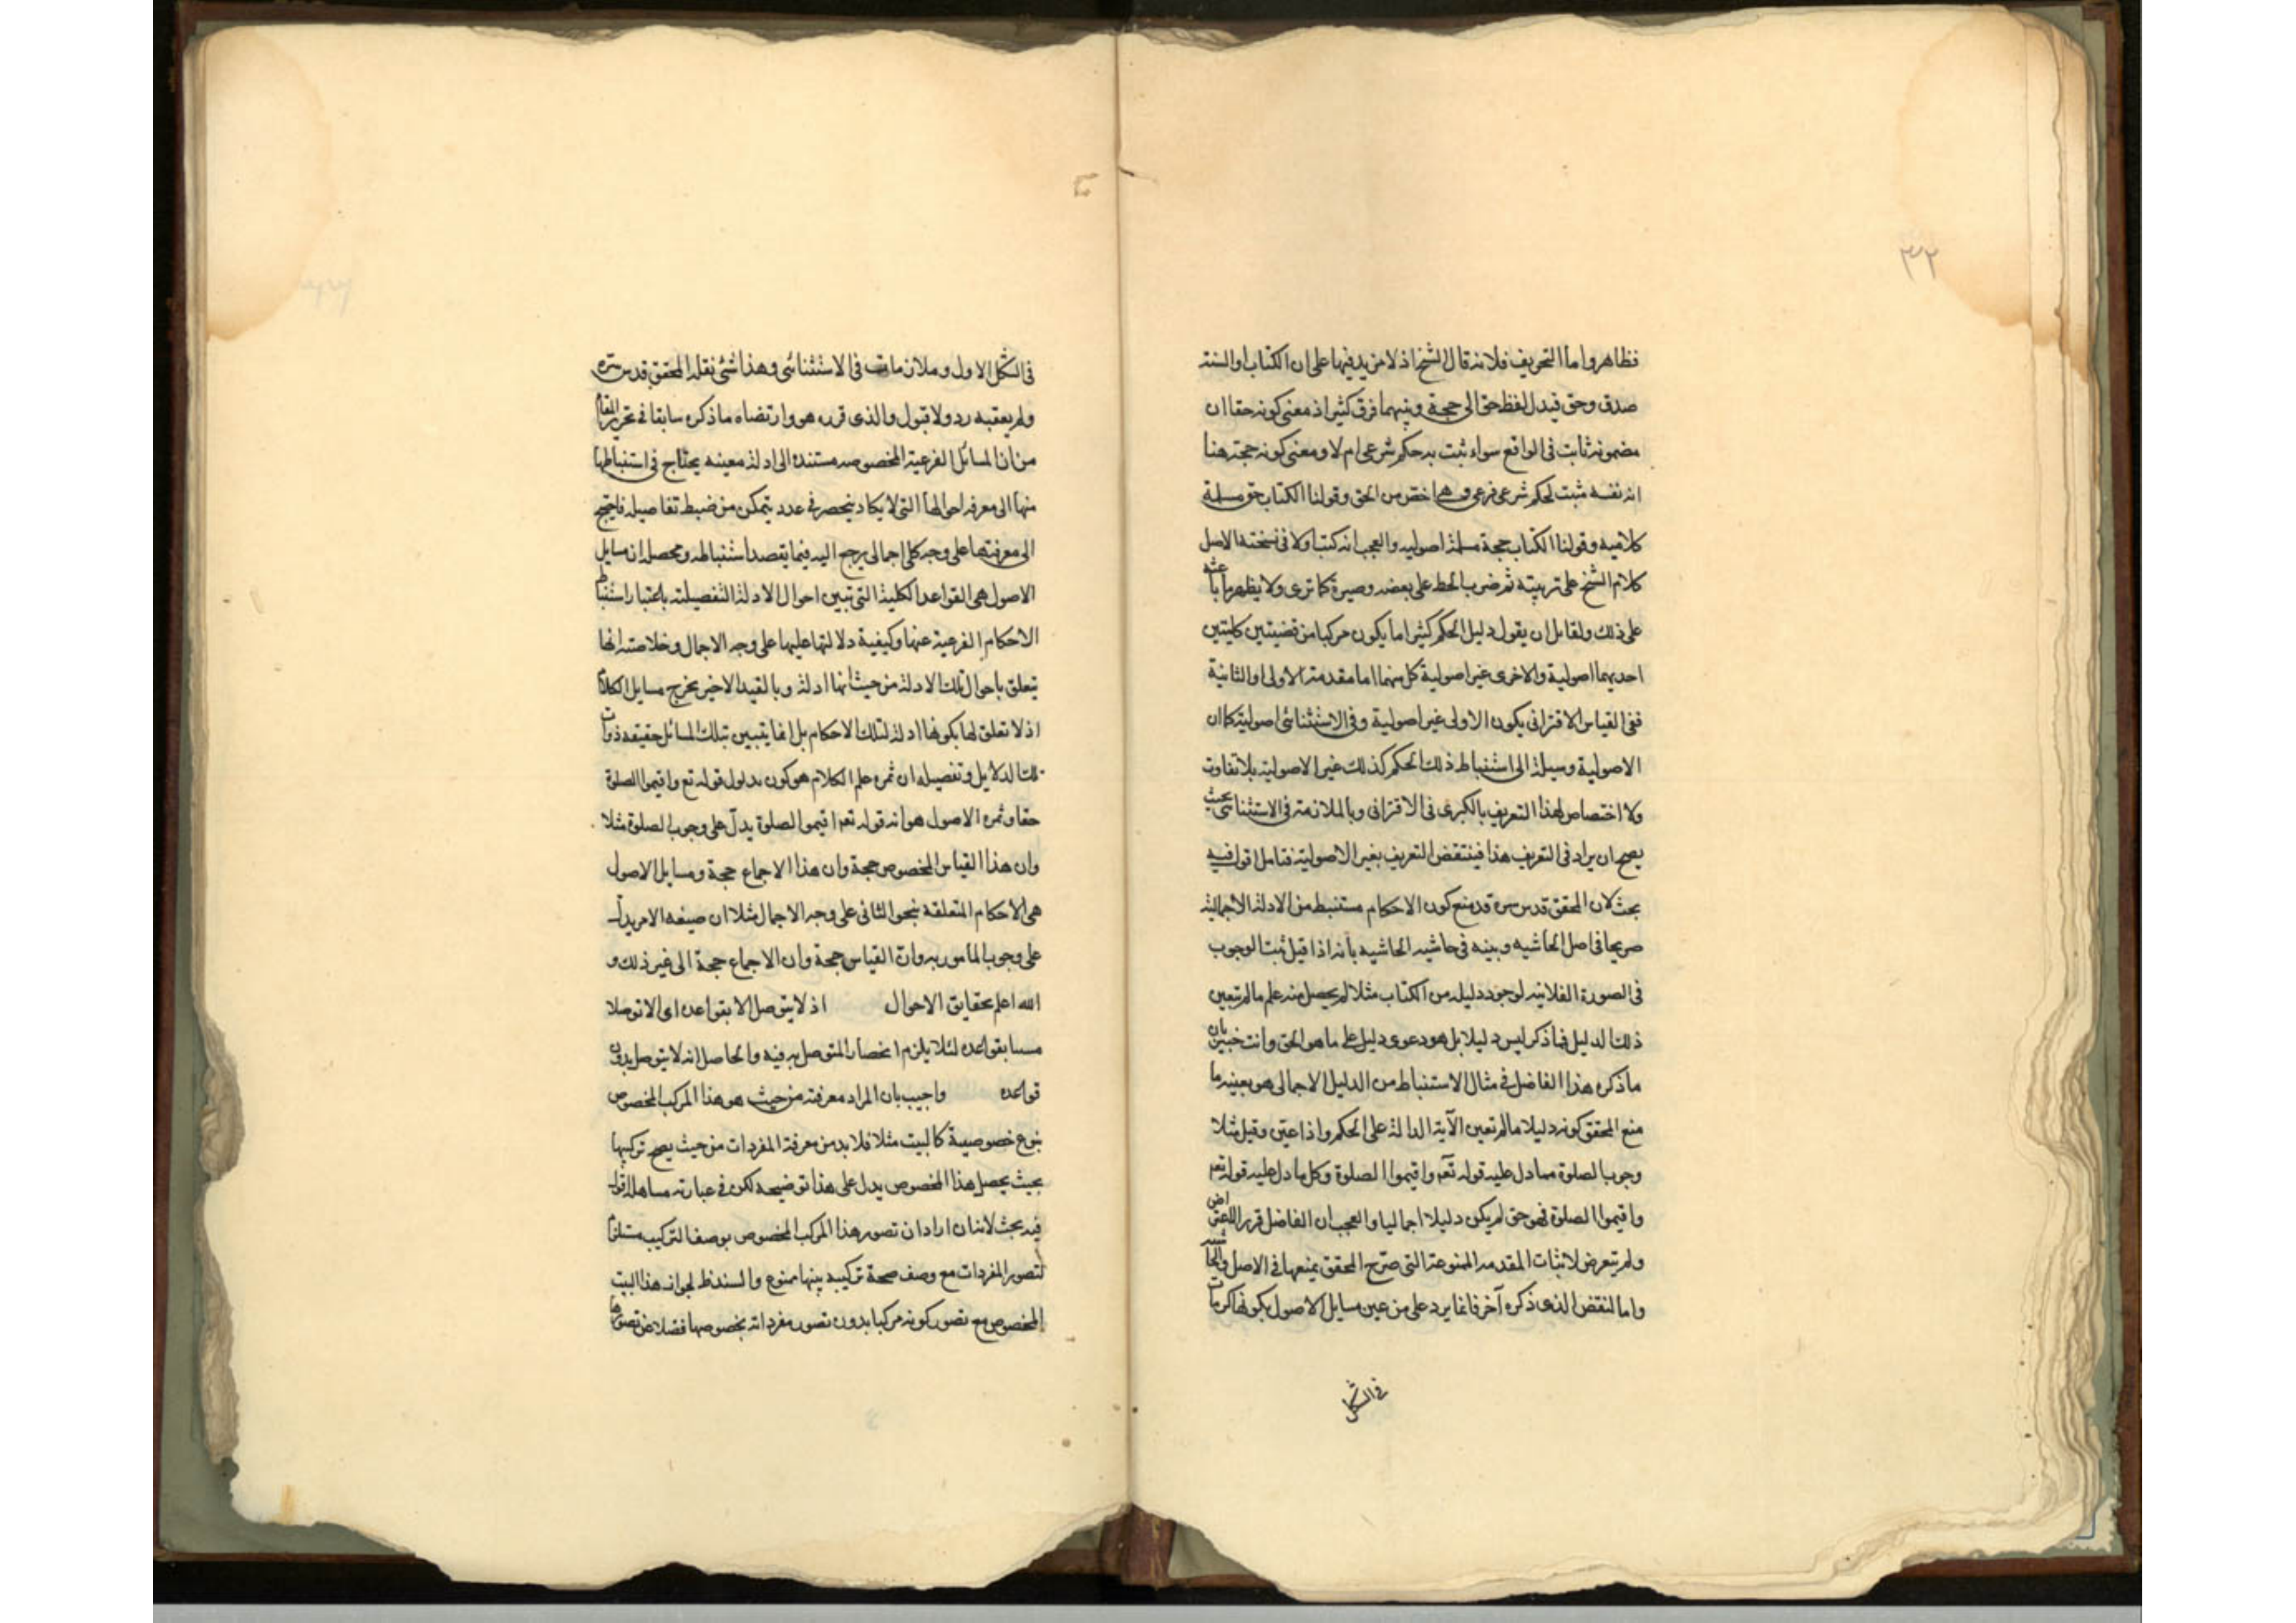 ٣٢
فظاهر واما التحريف فلانه قال الشيخ اذ لا مزيد فيها على ان الكتاب او السنة
صدق وحق فبدل لفظ حق الى حجة وبينهما فرق كثير اذ معنى كونه حقا ان
مضمونه ثابت فى الواقع سواء ثبت به حكم شرعى ام لا ومعنى كونه حجة هنا
انه نفسه مثبت لحكم شرعى فرعى وهى اخص من الحق وقولنا الكتاب حق مسلة
كلاميه وقولنا الكتاب حجة مسلة اصوليه والعجب انه كتب اولا فى نسخته الاصل
كلام الشيخ على تربيته ثم ضرب الخط على بعضه وصيره كما ترى ولا يظهر ما باعثه
على ذلك ولقايل ان يقول دليل الحكم كثيرا ما يكون مركبا من قضيتين كليتين
احديهما اصولية والاخرى غير اصولية كل منهما اما مقدمته الاولى او الثانية
ففى القياس الاقترانى يكون الاولى غير اصولية وفى الاستثنائى اصولية كما ان
الاصولية وسيلة الى استنباط ذلك الحكم كذلك غير الاصولية بلا تفاوت
ولا اختصاص لهذا التعريف بالكبرى فى الاقترانى وبالملازمة فى الاستثنائى بحيث
يصح ان يراد فى التعريف هذا فينتقض التعريف بغير الاصولية فتامل اقول فيه
بحث لان المحقق قدس سره قد منع كون الاحكام مستنبط من الادلة الاجمالية
صريحا فى اصل الحاشيه وبينه فى حاشيه الحاشيه بانه اذا قيل ثبت الوجوب
فى الصورة الفلانيه لوجود دليله من الكتاب مثلا لم يحصل منه علم ما لم تعين
ذلك الدليل فما ذكر ليس دليلا بل هو دعوى دليل على ما هو الحق وانت خبير بان
ما ذكره هذا الفاضل فى مثال الاستنباط من الدليل الاجمالى هو بعينه ما
منع المحقق كونه دليلا ما لم تعين الآية الدالة على الحكم واذا عين وقيل مثلا
وجوب الصلوة مما دل عليه قوله تعم واقيموا الصلوة وكل ما دل عليه قوله تعم
واقيموا الصلوة فهو حق لم يكن دليلا اجماليا والعجب ان الفاضل قرر الاعتراض
ولم يتعرض لاثبات المقدمه الممنوعة التى صرح المحقق بمنعها فى الاصل والحاشيه
واما النقض الذى ذكره آخر فانما يرد على من عين مسايل الاصول بكونها كبريات
فى الشكل
فى الشكل الاول وملازمات فى الاستثنائى وهذا شئ نقله المحقق قدس سره
ولم يعقبه رد ولا قبول والذى قرره هو وارتضاه ما ذكره سابقا فى تحرير المقام
من ان المسائل الفرعية المخصوصه مستندة الى ادلة معينه يحتاج فى استنباطها
منها الى معرفه احوالها التى لا يكاد ينحصر فى عدد يتمكن من ضبط تفاصيله فاحتيج
الى معرفتها على وجه كلى اجمالى يرجع اليه فيما يقصد استنباطه ومحصله ان مسايل
الاصول هى القواعد الكلية التى تبين احوال الادلة التفصيلته باعتبار استنباط
الاحكام الفرعية عنها وكيفية دلالتها عليها على وجه الاجمال وخلاصته انها
يتعلق باحوال تلك الادلة من حيث انها ادلة وبالقيد الاخير يخرج مسايل الكلام
اذ لا تعلق لها بكونها ادلة لتلك الاحكام بل انما يتبين بتلك المسائل حقيقه ذوات
تلك الدلايل وتفصيله ان ثمره علم الكلام هو كون مدلول قوله تع واقيموا الصلوة
حقا وثمره الاصول هو انه قوله تعم اقيموا الصلوة يدل على وجوب الصلوة مثلا
وان هذا القياس المخصوص حجة وان هذا الاجماع حجة ومسايل الاصول
هى الاحكام المتعلقة بنحو الثانى على وجه الاجمال مثلا ان صيغه الامر يدل
على وجوب المأمور به وان القياس حجة وان الاجماع حجة الى غير ذلك و
الله اعلم بحقايق الاحوال اذ لا يتوصل الا بقواعده اى الا توصلا
مسببا بقواعده لئلا يلزم انحصار المتوصل به فيه والحاصل انه لا يتوصل بدون
قواعده واجيب بان المراد معرفته من حيث هو هذا المركب المخصوص
بنوع خصوصية كالبيت مثلا فلا بد من معرفة المفردات من حيث يصح تركيبها
بحيث يحصل هذا المخصوص يدل على هذا توضيحه لكن فى عبارته مساهلة اقول
فيه بحث لانه ان اراد ان تصور هذا المركب المخصوص بوصف التركيب مستلزم
لتصور المفردات مع وصف صحة تركيبه بينها ممنوع والسند ظ لجواز هذا البيت
المخصوص مع تصور كونه مركبا بدون تصور مفرداته بخصوصها فضلا عن تصورها